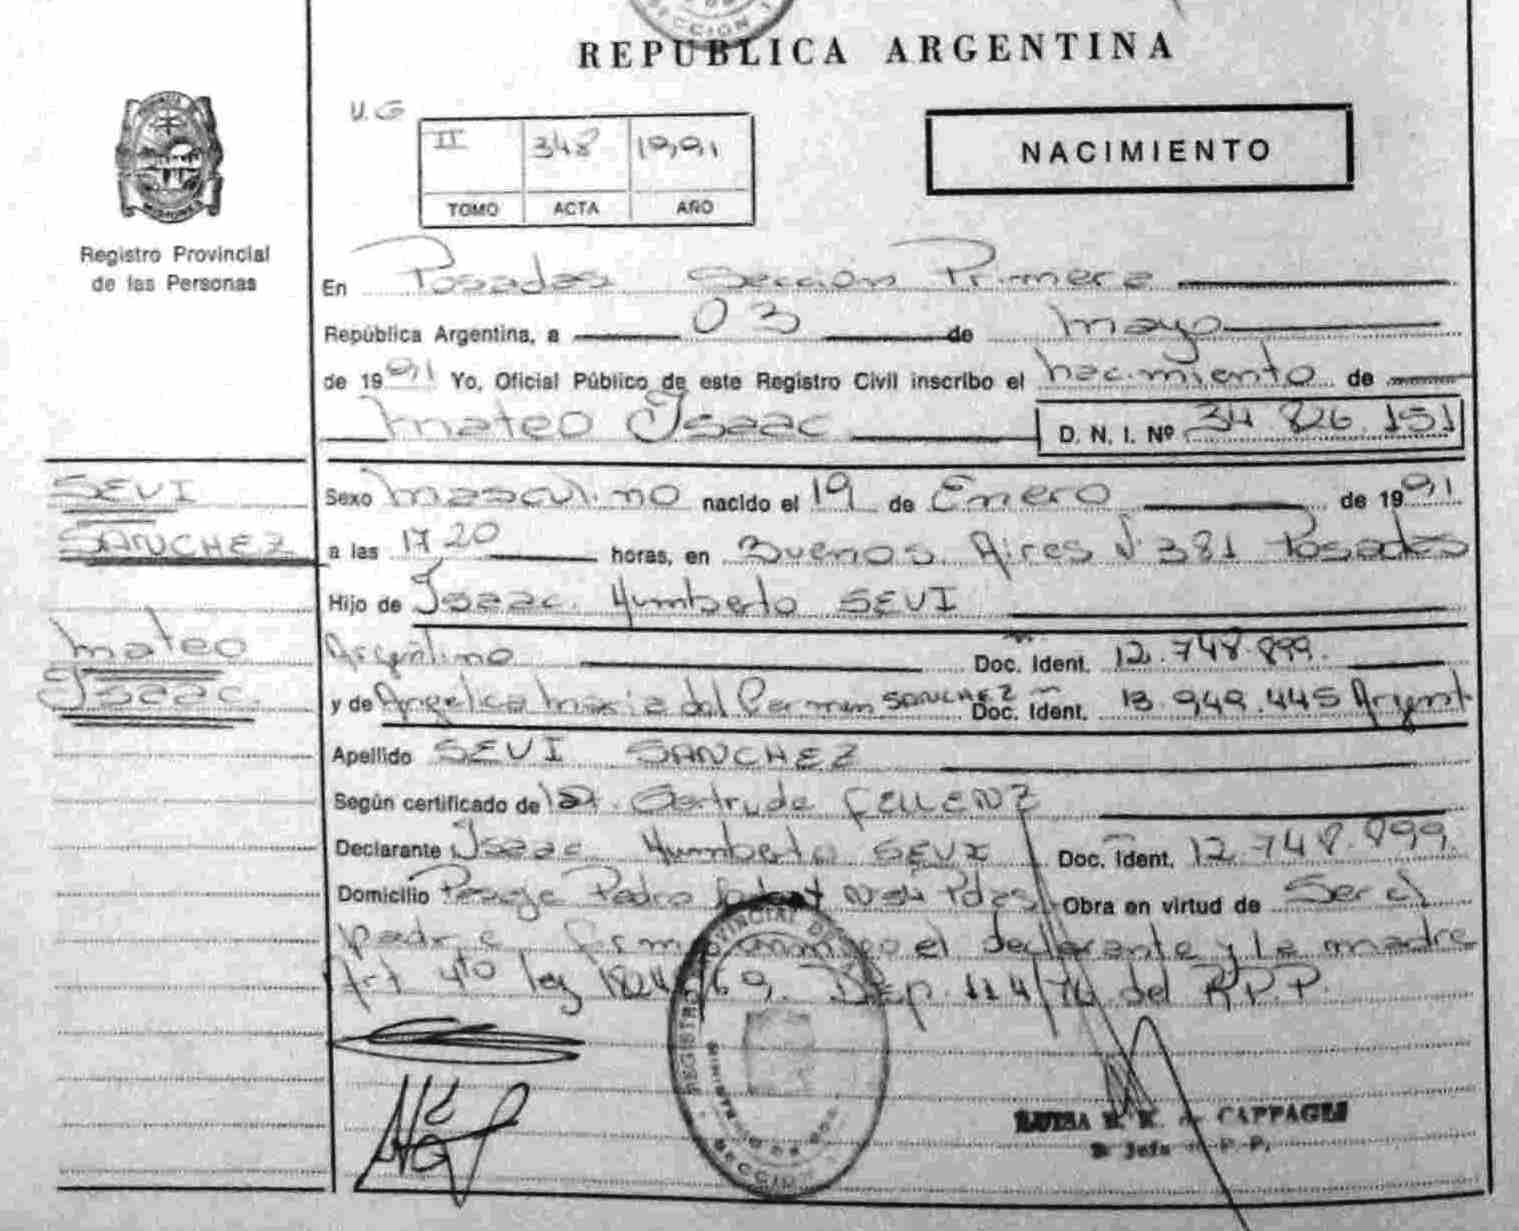 REPUBLICA ARGENTINA
U.G
II 348 1991
TOMO ACTA AÑO
NACIMIENTO
MISIONES
Registro Provincial
de las Personas
En Posadas Sección Primera
República Argentina, a 03 de mayo
de 1991 Yo, Oficial Público de este Registro Civil inscribo el nacimiento de
Mateo Isaac D. N. I. Nº 34 826.151
SEVI
SANCHEZ
Mateo
Isaac.
Sexo masculino nacido el 19 de Enero de 1991
a las 17 20 horas, en Buenos Aires Nº 381 Posadas
Hijo de Isaac Humberto SEVI
Argentino Doc. Ident. 12.748.899.
y de Angelica Maria del Carmen SANCHEZ Doc. Ident. 13.949.445 Argent
Apellido SEVI SANCHEZ
Según certificado de Gertrude FELLENZ
Declarante Isaac Humberto SEVI Doc. Ident. 12.748.899.
Domicilio Pasaje Pedro Pdas Obra en virtud de Ser el
padre firmando el declarante y la madre
Art 4to ley 18248/69. Disp. 114/76 del R.P.P.
REGISTRO PROVINCIAL DE
MINISTERIO DE GOB
SECCION
LUISA CAPPAGLI
Jefa R.P.P.